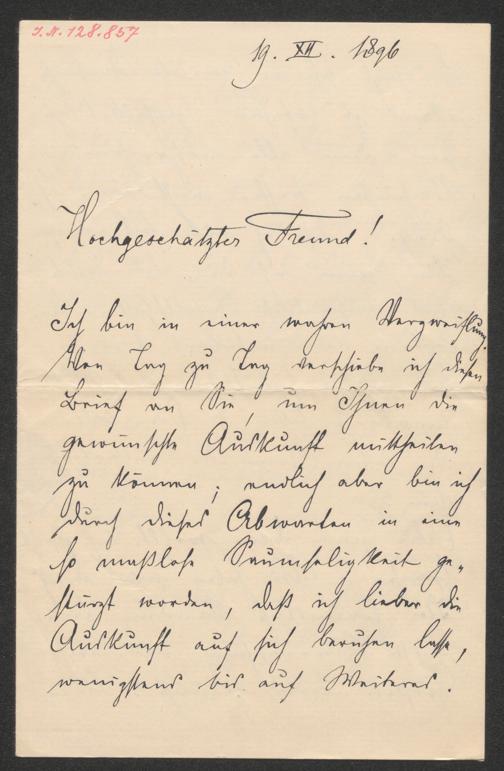 I. N. 128.857
19. XII. 1896
Hochgeschätzter Freund!
Ich bin in einer wahren Verzweiflung.
Von Tag zu Tag verschiebe ich diesen
Brief an Sie, um Ihnen die
gewünschte Auskunft mittheilen
zu können; endlich aber bin ich
durch dieses Abwarten in eine
so maßlose Saumseligkeit ge„
stürzt worden, daß ich lieber die
Auskunft auf sich beruhen lasse,
wenigstens bis auf Weiteres.